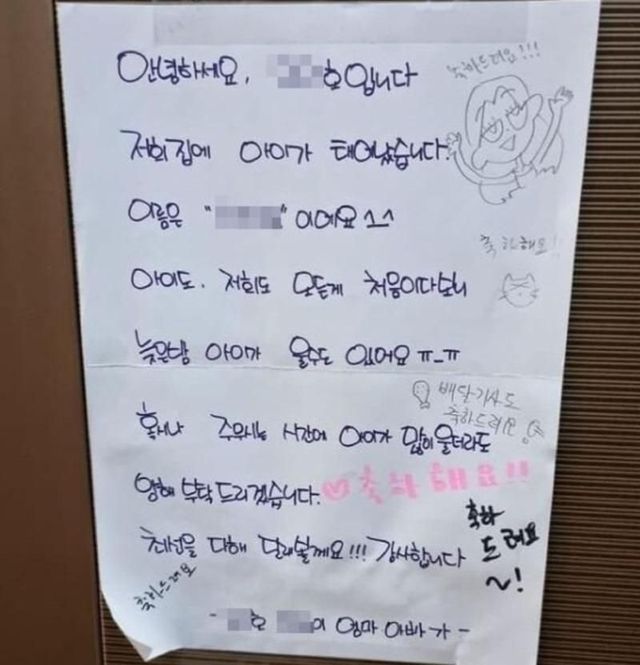 안녕하세요, 호입니다
축하드려요!!!
저희집에 아이가 태어났습니다.
이름은 " "이에요 ^_^
축하해요!
아이도, 저희도 모든게 처음이다보니
늦은밤 아이가 울수도 있어요 ㅠ_ㅠ
배달기사도
축하드려요
혹시나 주무시는 시간에 아이가 많이 울더라도
양해 부탁드리겠습니다.
축하해요!!
최선을 다해 달래볼게요!!! 감사합니다
축하
드려요
~!
축하드려요
- 호 이 엄마 아빠가 -